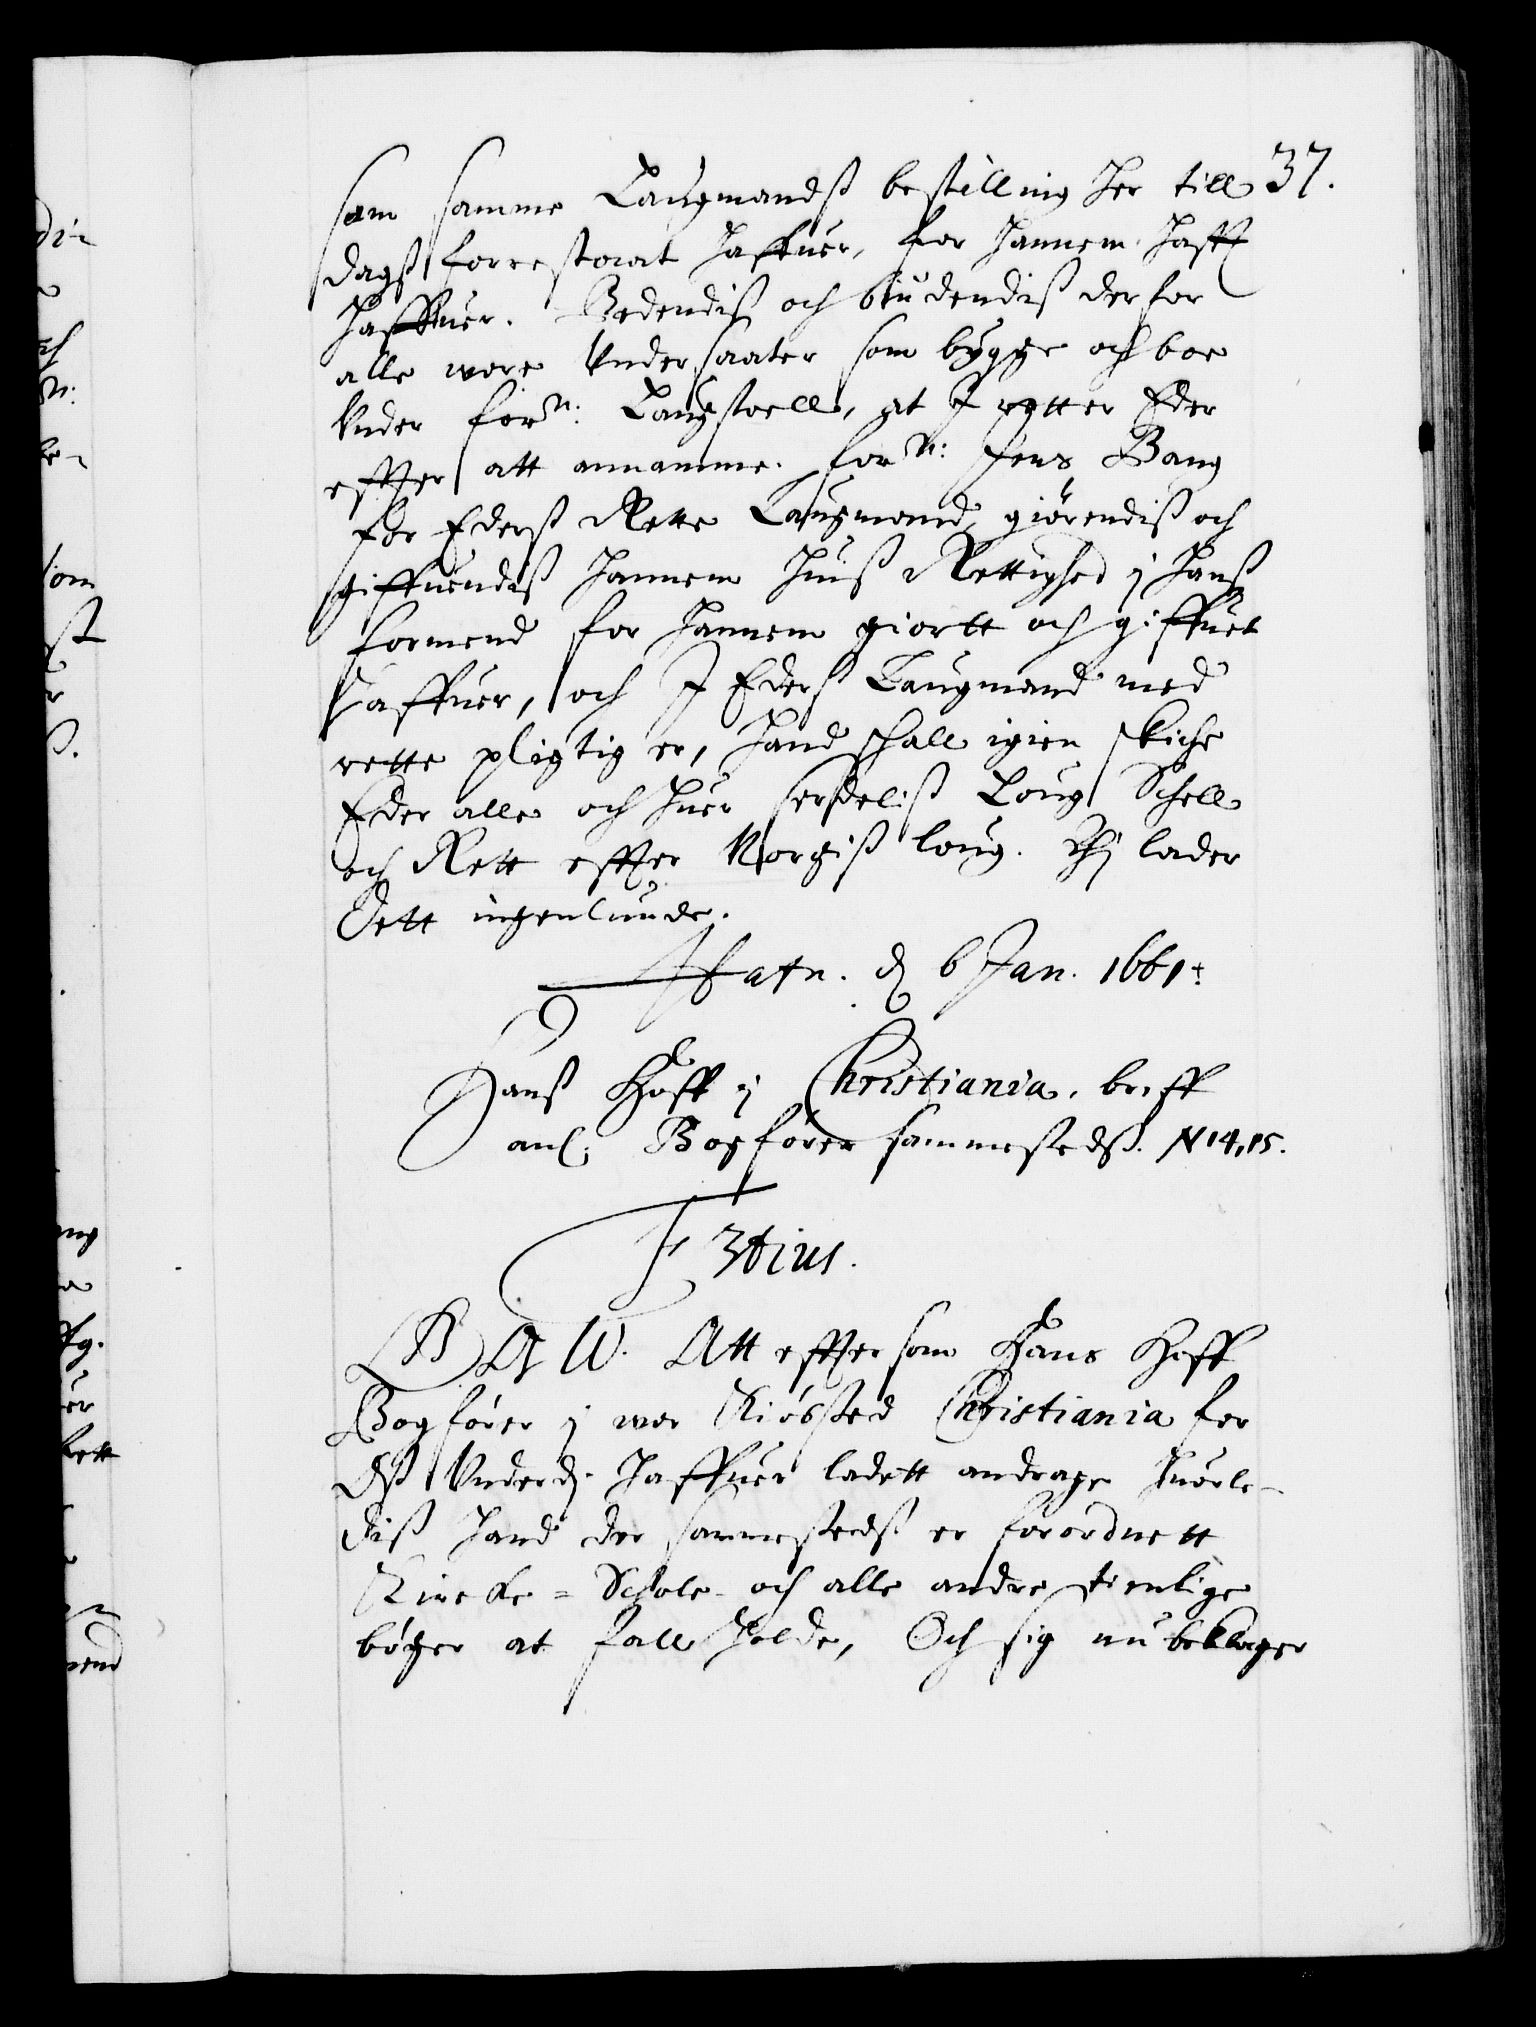 37.
som samme Laugmandß bestilling her till
dagß forrestaaet haffuer, for hannem hafft
haffuer. Bedendiß och biudendiß derfor
alle wore Undersaater som bygge och boe
Under forne: Laugstoell, at I retter Eder
effter att annamme forne: Jens Bang
for Ederß Rette Laugmand, giörendiß och
giffuendiß hannem huiß Rettighed j hanß
formend for hannem giortt och giffuet
haffuer, och I Ederß Laugmand med
rette pligtig er, hand schall igien skiche
Eder alle och huer serdeliß Loug Schell
och Rett effter Norgiß loug. Thj lader
dett ingenlunde.
Hafn. d 6 Jan. 1661.
Hanß Hoff j Christiania, breff
anl: Bogförer sammestedß. N 14, 15.
F 3tius.
G A W. Att effter som Hans Hoff
Bogförer j wor Kiöbsted Christiania for
Oß Underd: haffuer ladett andrage huorle-
diß hand der sammestedß er forordnett
Kircke- Schole- och alle andre tienlige
böger at fall holde, Och sig nu beklager